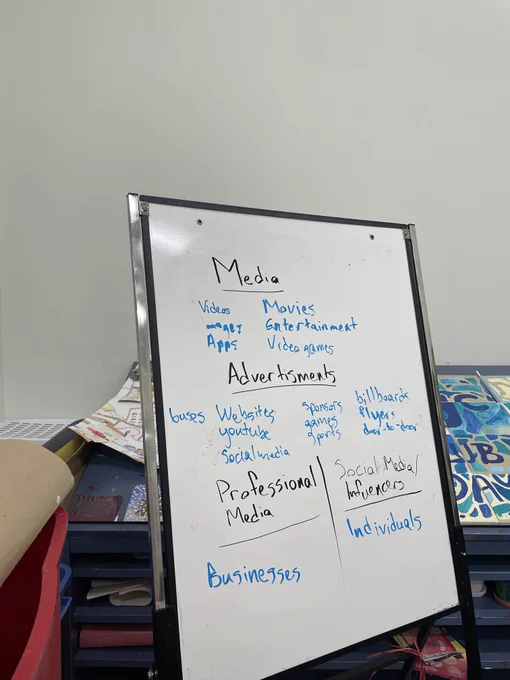 Media
Videos Movies
Images Entertainment
Apps Video games
Advertisments
buses Websites sponsors billboards
youtube games flyers
Social media sports door-to-door
Professional Media
Social Media/ Influencers
Businesses
Individuals